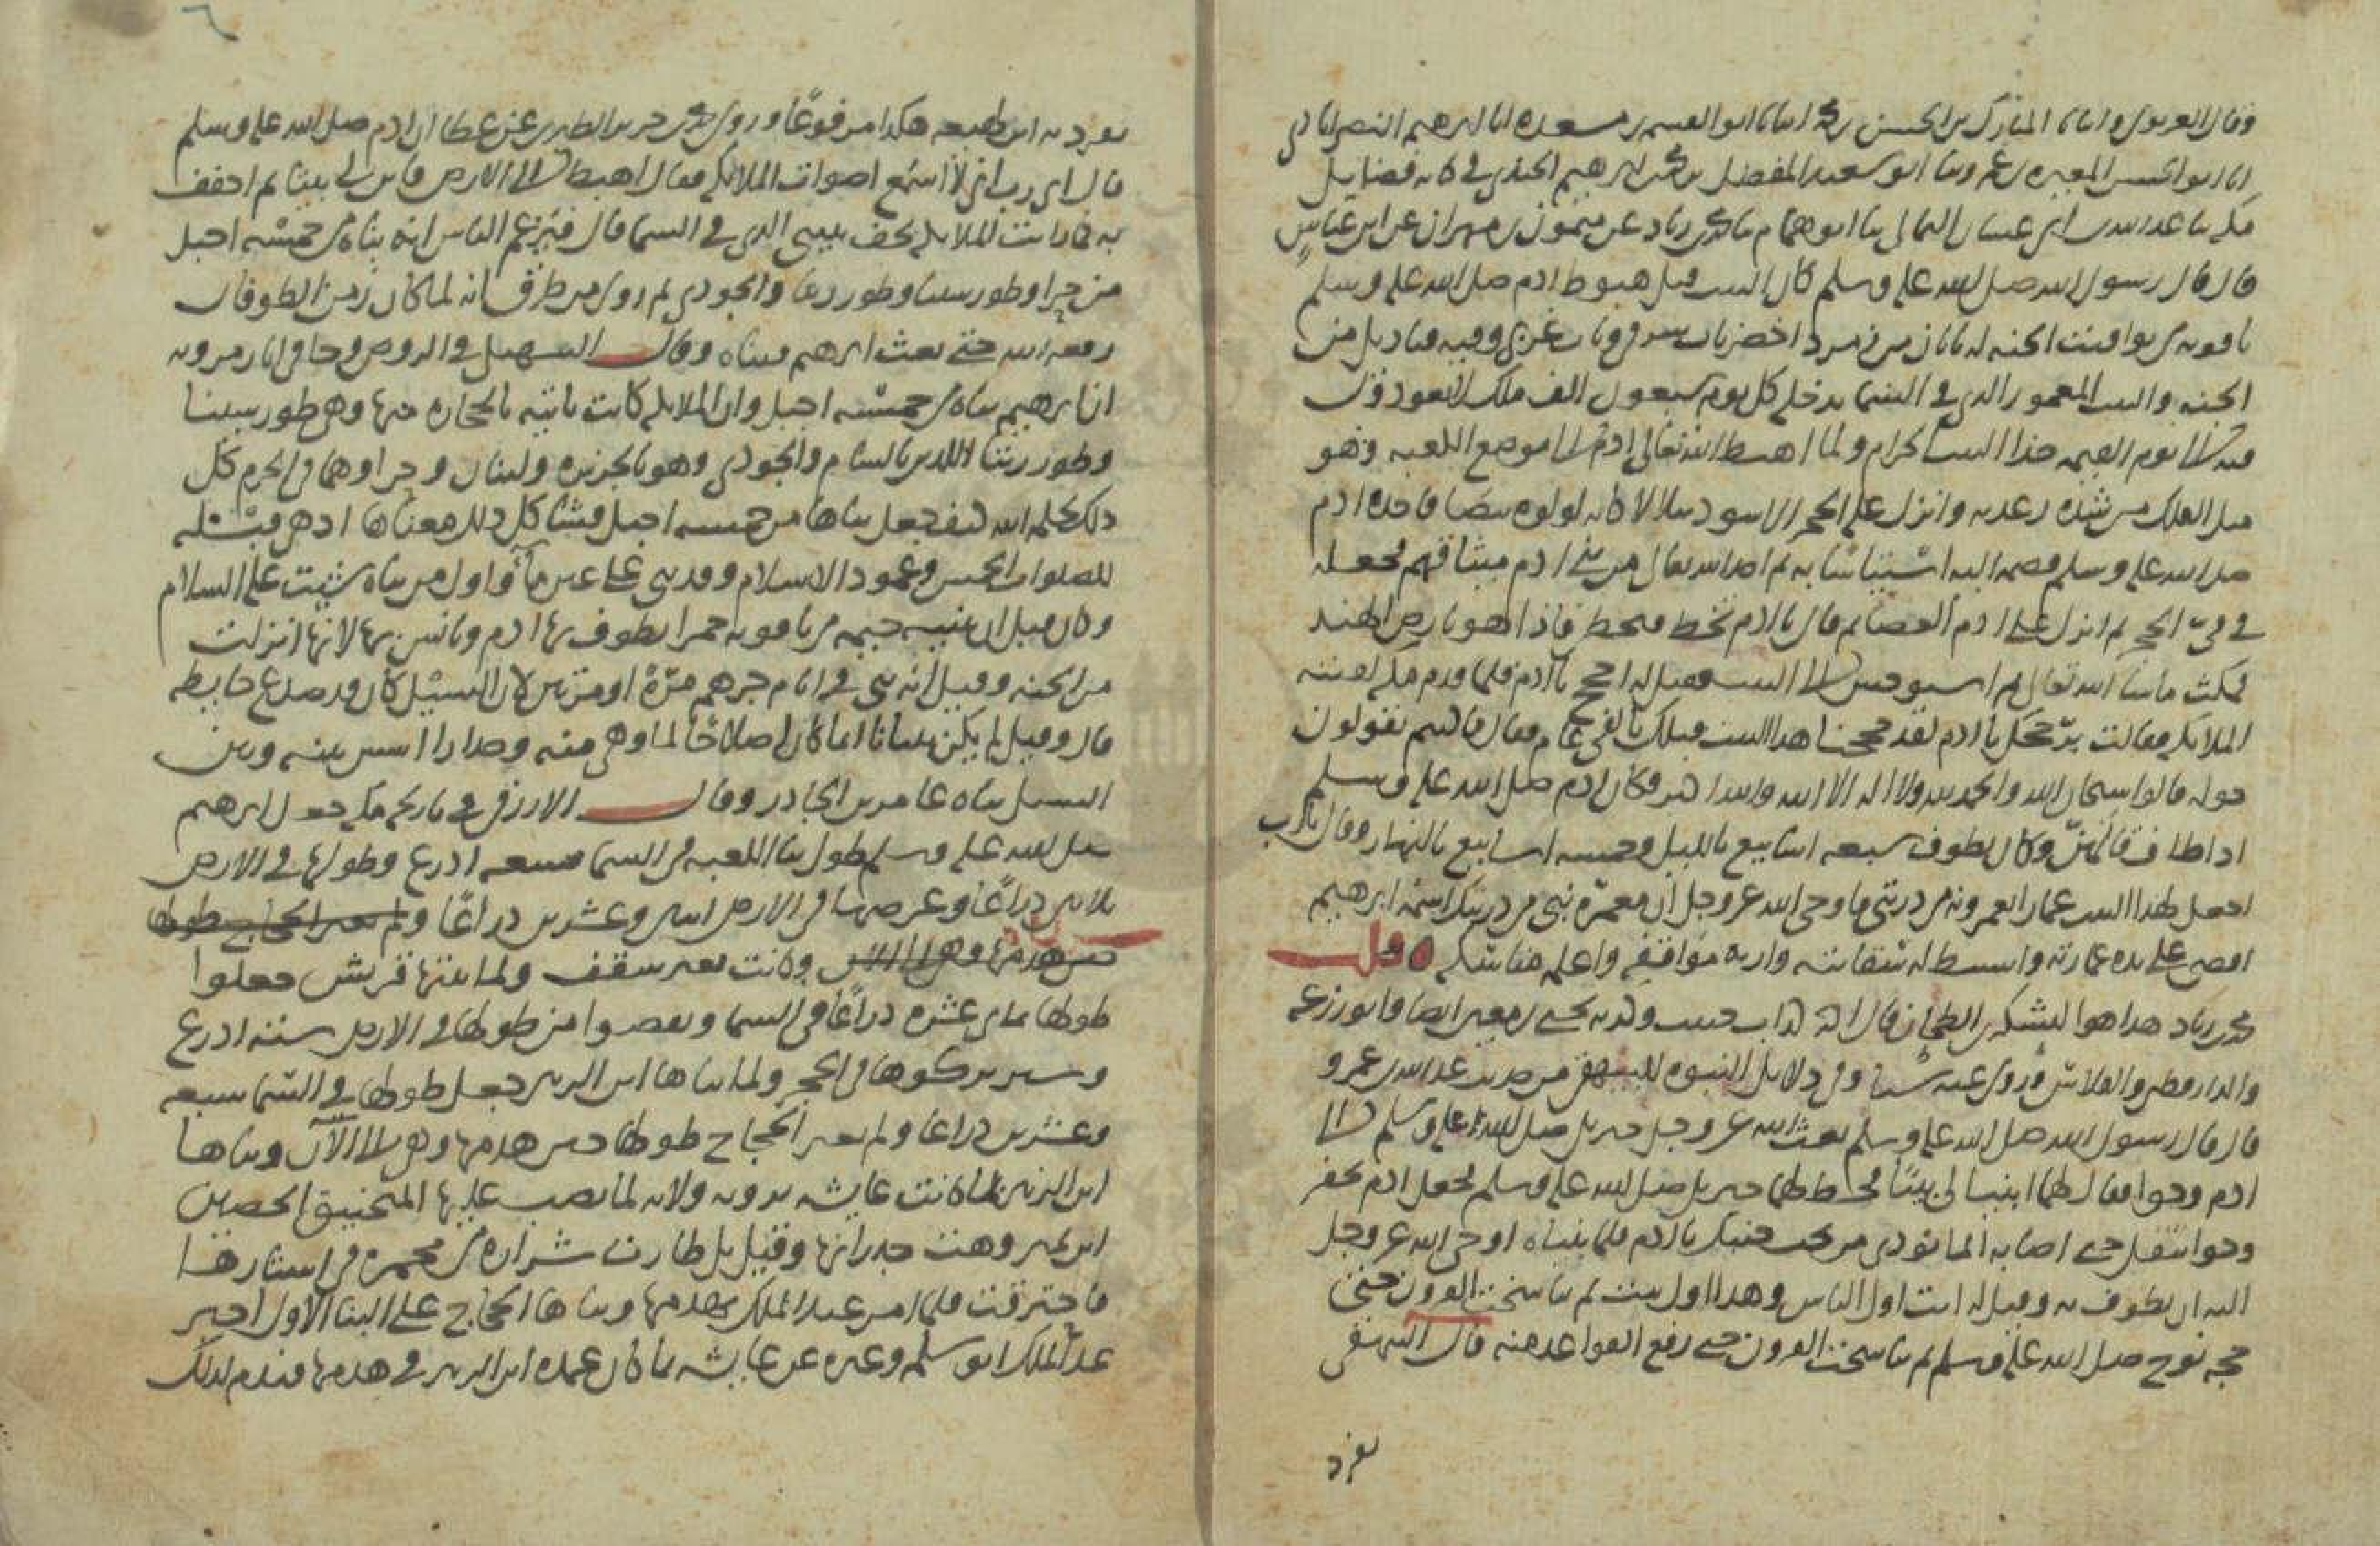 وقال العزيزي وانبانا المبارك بن الحسن انبانا ابو القسم بن مسعدة انا ابرهيم النصراباذي
انا ابو الحسن المغيرة بن عمرو ثنا ابو سعيد المفضل بن محمد بن ابرهيم الجندي في كتابه فضايل
مكه ثنا عبد الله بن ابي غسان اليماني ثنا ابو همام ثنا محمد بن زياد عن ميمون بن مهران عن ابن عباس
قال قال رسول الله صلى الله عليه وسلم كان البيت قبل هبوط ادم صلى الله عليه وسلم
ياقوته من يواقيت الجنه له بابان من زمرد اخضر باب شرقي وباب غربي وفيه قناديل من
الجنه والبيت المعمور الذي في السما يدخله كل يوم سبعون الف ملك لا يعودون
فيه الى يوم القيمه حذا البيت الحرام ولما اهبط الله تعالى ادم الى موضع الكعبه وهو
مثل الفلك من شدة رعدته وانزل عليه الحجر الاسود يتلالا كانه لولوه بيضا فاخذه ادم
صلى الله عليه وسلم فضمه اليه استيناسا به ثم اخذ الله تعالى من بني ادم ميثاقهم فجعله
في الحجر ثم انزل على ادم العصا ثم قال يا ادم تخط فتخطى فاذا هو بارض الهند
فمكث ما شا الله تعالى ثم استوحش الى البيت فقيل له احجج يا ادم فلما قدم مكه لقيته
الملايكه فقالت بر حجك يا ادم لقد حججنا هذا البيت قبلك بالفي عام فقال فما كنتم تقولون
حوله قالوا سبحان الله والحمد لله ولا اله الا الله والله اكبر وكان ادم صلى الله عليه وسلم
اذا طاف قالهن وكان يطوف سبعه اسابيع بالليل وخمسه اسابيع بالنهار وقال يا رب
اجعل لهذا البيت عمارا يعمرونه من ذريتي فاوحى الله عز وجل ان معمره نبي من ذريتك اسمه ابرهيم
اقضي على يده عمارته واسط له سقايته واريه مواقفه واعلمه مناسكه ٥ قلت
محمد بن زياد هذا هو اليشكري الطحان قال كذاب خبيث وكذبه يحيى بن معين ايضا وابو زرعه
والدارقطني والفلاس وروى عنه وفي دلايل النبوه للبيهقي من حديث عبد الله بن عمرو
قال قال رسول الله صلى الله عليه وسلم بعث الله عز وجل جبريل صلى الله عليه وسلم الى
ادم وحوا فقال لهما ابنيا لي بيتا فخط لهما جبريل صلى الله عليه وسلم فجعل ادم يحفر
وحوا تنقل حتى اصابه الما نودي من تحته حسبك يا ادم فلما بنياه اوحى الله عز وجل
اليه ان يطوف به وقيل له انت اول الناس وهذا اول بيت ثم تناسخت القرون حتى
حجه نوح صلى الله عليه وسلم ثم تناسخت القرون حتى رفع القواعد منه قال البيهقي
تفرد
٦
تفرد به ابن لهيعه هكذا مرفوعا وروى محمد بن جرير الطبري عن عطا ان ادم صلى الله عليه وسلم
قال اي رب اني لا اسمع اصوات الملايكه فقال اهبط الى الارض فابن لي بيتا ثم احفف
به كما رايت الملايكه تحف ببيتي الذي في السما قال فيزعم الناس انه بناه من خمسه اجبل
من حرا وطور سينا وطور زيتا والجودي ثم روى من طرق انه لما كان زمن الطوفان
رفعه الله حتى بعث ابرهيم فبناه وقال السهيلي في الروض وجا في اثار مرويه
ان ابرهيم بناه من خمسه اجبل وان الملايكه كانت تاتيه بالحجاره منها وهي طور سينا
وطور زيتا اللذين بالشام والجودي وهو بالجزيره ولبنان وحرا وهما في الحرم كل
ذلك لحكمه الله كيف جعل بناها من خمسه اجبل فشاكل ذلك معناها اذ هي قبله
للصلوات الخمس وعمود الاسلام وقد بني على خمس واول من بناه شيث عليه السلام
وكان قبل ان يبنيه خيمه من ياقوته حمرا يطوف بها ادم ويانس بها لانها انزلت
من الجنه وقيل انه بني في ايام جرهم مرة او مرتين لان السيل كان قد صدع حايطه
قال وقيل لم يكن بنيانا انما كان اصلاحا لما وهى منه وجدارا بني بينه وبين
السيل بناه عامر بن الجادر وقال الازرقي في تاريخ مكه جعل ابرهيم
صلى الله عليه وسلم طول بنا الكعبه في السما تسعه اذرع وطولها في الارض
ثلاثين ذراعا وعرضها في الارض اثنين وعشرين ذراعا ولم يغير الحجاج طولها
حين هدمها وهي الى الان وكانت بغير سقف ولما بنتها قريش جعلوا
طولها ثماني عشره ذراعا في السما ونقصوا من طولها في الارض سته اذرع
وشبر تركوها في الحجر ولما بناها ابن الزبير جعل طولها في السما سبعه
وعشرين ذراعا ولم يغير الحجاج طولها حين هدمها وهي الى الان وبناها
ابن الزبير لما كانت عايشه ترويه ولانه لما نصب عليها المنجنيق الحصين
ابن نمير وهنت جدرانها وقيل بل طارت شراره من مجمره في استارها
فاحترقت فلما امر عبد الملك بهدمها وبناها الحجاج على البنا الاول اخبر
عبد الملك ابو سلمه وغيره عن عايشه بما كان عمده ابن الزبير في هدمها فندم لذلك